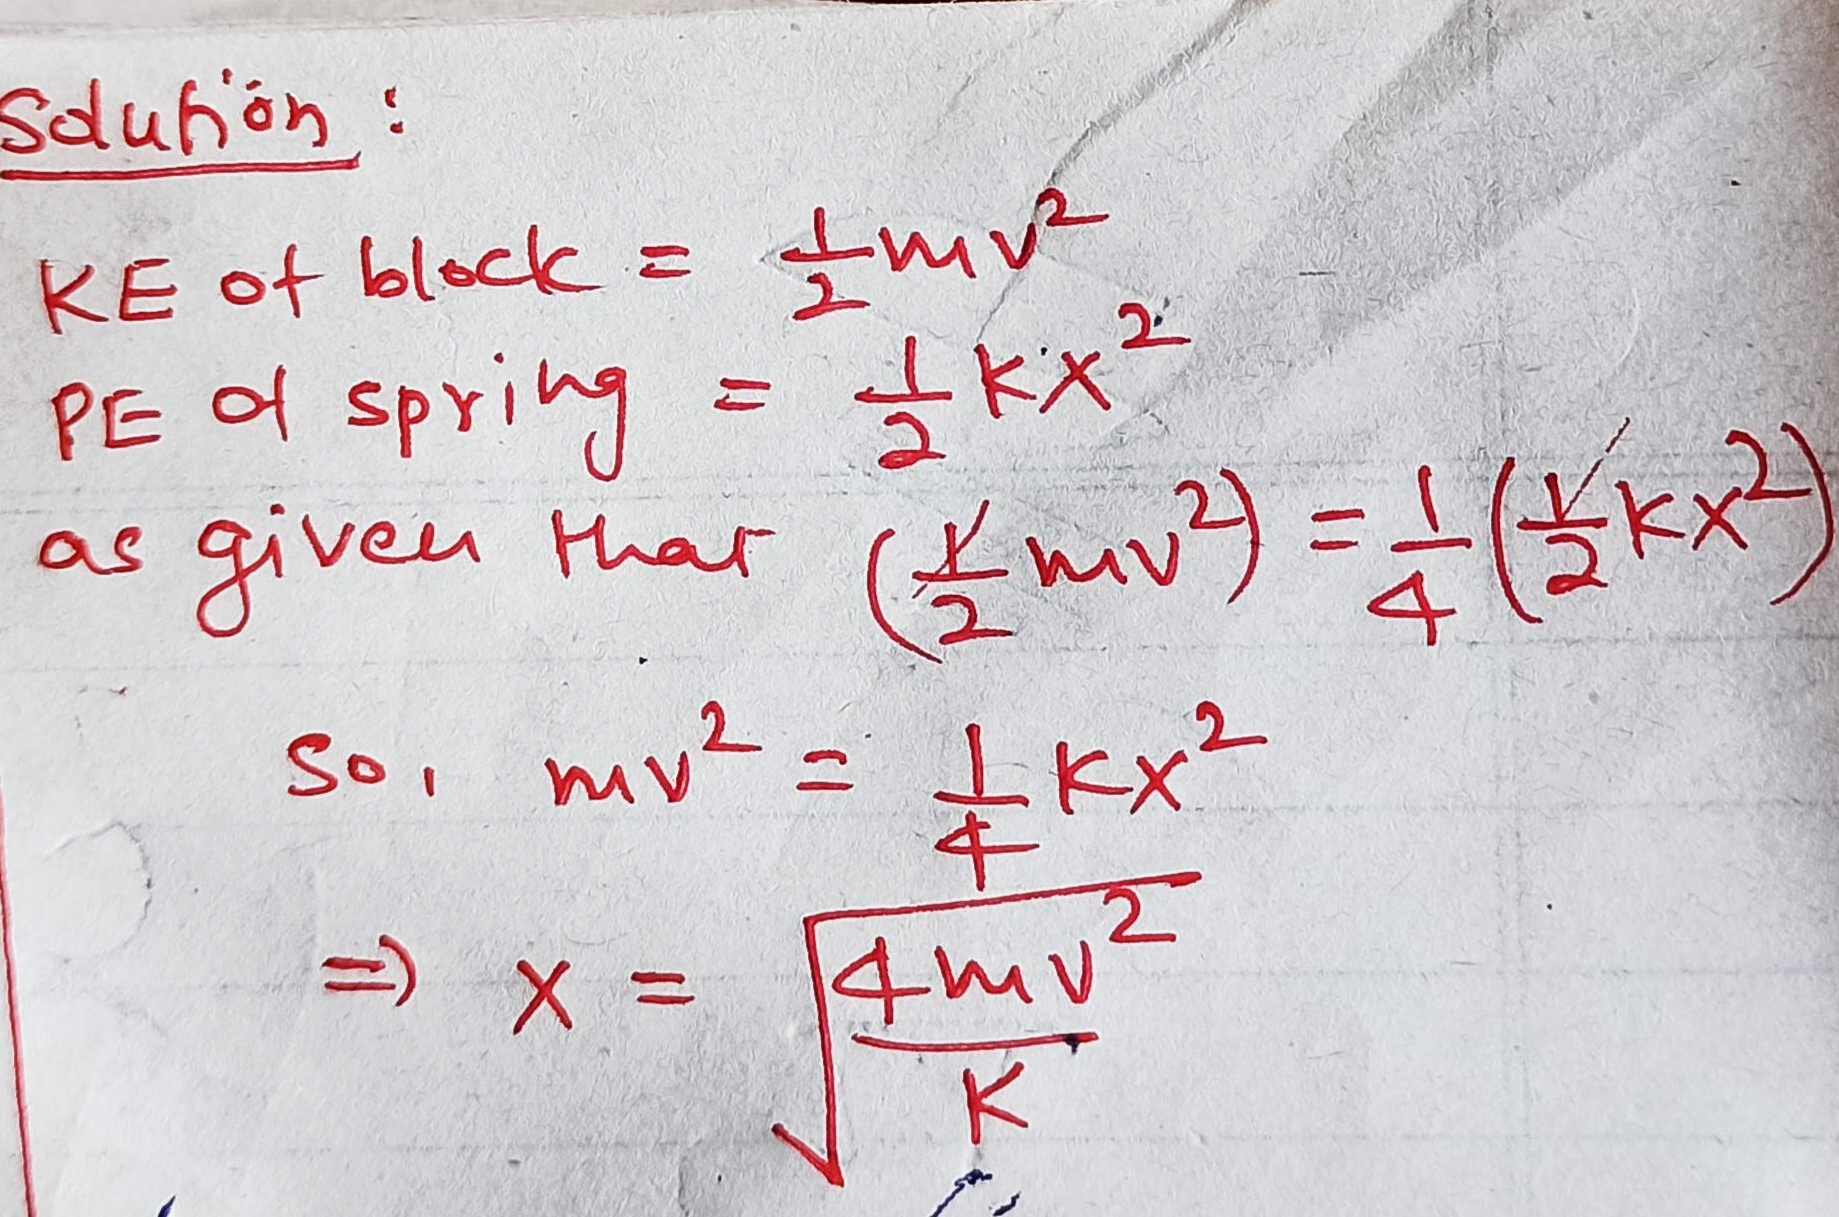 Solution :
KE of block = 1/2 mv²
PE of spring = 1/2 Kx²
as given that (1/2 mv²) = 1/4 (1/2 Kx²)
So, mv² = 1/4 Kx²
⇒ x = √(4mv²/K)